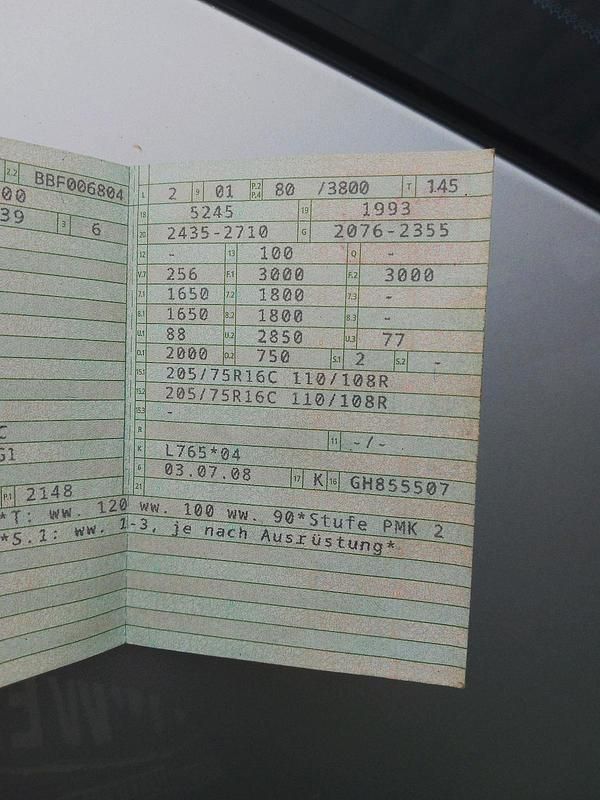 2.2 BBF006804 L 2 9 01 P.2 P.4 80 /3800 T 145
00 18 5245 19 1993
39 3 6 20 2435-2710 G 2076-2355
12 - 13 100 Q -
V.7 256 F.1 3000 F.2 3000
7.1 1650 7.2 1800 7.3 -
8.1 1650 8.2 1800 8.3 -
U.1 88 U.2 2850 U.3 77
O.1 2000 O.2 750 S.1 2 S.2 -
15.1 205/75R16C 110/108R
15.2 205/75R16C 110/108R
15.3 -
R 11 -/-
C K L765*04
G1 6 03.07.08 17 K 16 GH855507
P.1 2148 21
*T: ww. 120 ww. 100 ww. 90*Stufe PMK 2
*S.1: ww. 1-3, je nach Ausrüstung*